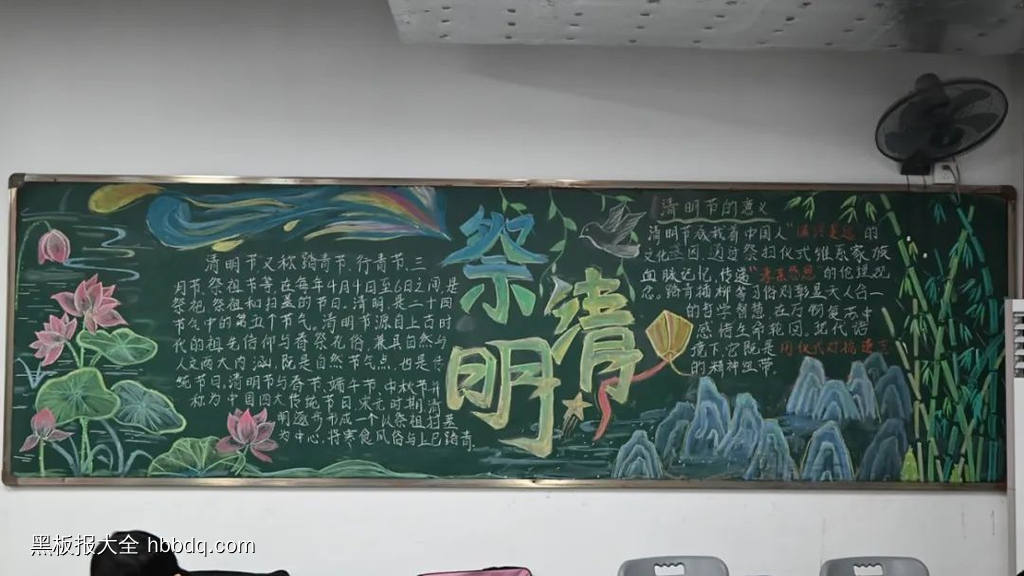 清明节又称踏青节、行青节、三
月节、祭祖节等,在每年4月4日至6日之间,是
祭祀、祭祖和扫墓的节日。清明是二十四
节气中的第五个节气。清明节源自上古时
代的祖先信仰与春祭礼俗,兼具自然与
人文两大内涵,既是自然节气点,也是传
统节日,清明节与春节、端午节、中秋节并
称为中国四大传统节日。宋元时期,清
明逐步形成一个以祭祖扫墓
为中心,将寒食风俗与上巳踏青
祭
清
明
清明节的意义
清明节承载着中国人"
的
文化基因,通过祭扫仪式维系家族
血脉记忆,传递"
的伦理观
念。踏青插柳等习俗则彰显天人合一
的哲学智慧,在万物复苏中
感悟生命轮回,现代语
境下它既是用仪式对抗遗忘
的精神纽带。
黑板报大全 hbbdq.com